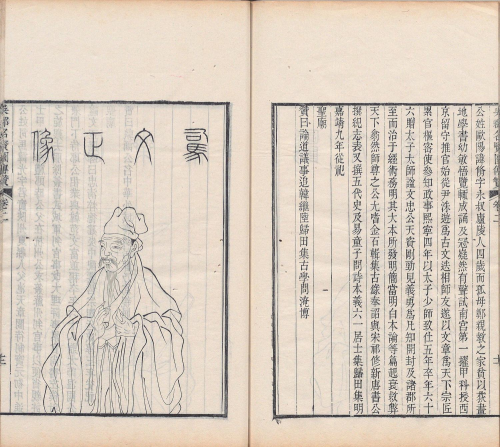 公姓歐陽諱修字永叔廬陵人四歲而孤母鄭親教之家貧以荻畫
地學書幼敏悟覽輒成誦及冠嶷然有聲試南宮第一擢甲科授西
京留守推官始從尹洙遊為古文迭相師友遊以文章為天下宗匠
累官樞密使參知政事熙寧四年以太子少師致仕五年卒年六十
六贈太子太師諡文忠公天資剛勁見義勇為凡知開封及諸郡所
至而治于經術務明其大本所發明簡當明白本論等篇起衰救弊
天下翕然師尊之公尤嗜金石輯集古錄奉詔與宋祁修新唐書公
撰紀志表又撰五代史及易童子問詩本義六一居士集歸田集明
嘉靖九年從祀
聖廟
贊曰論道議事追韓繼陸歸田集古學問淹博
文正像
吳郡名賢圖傳贊 卷